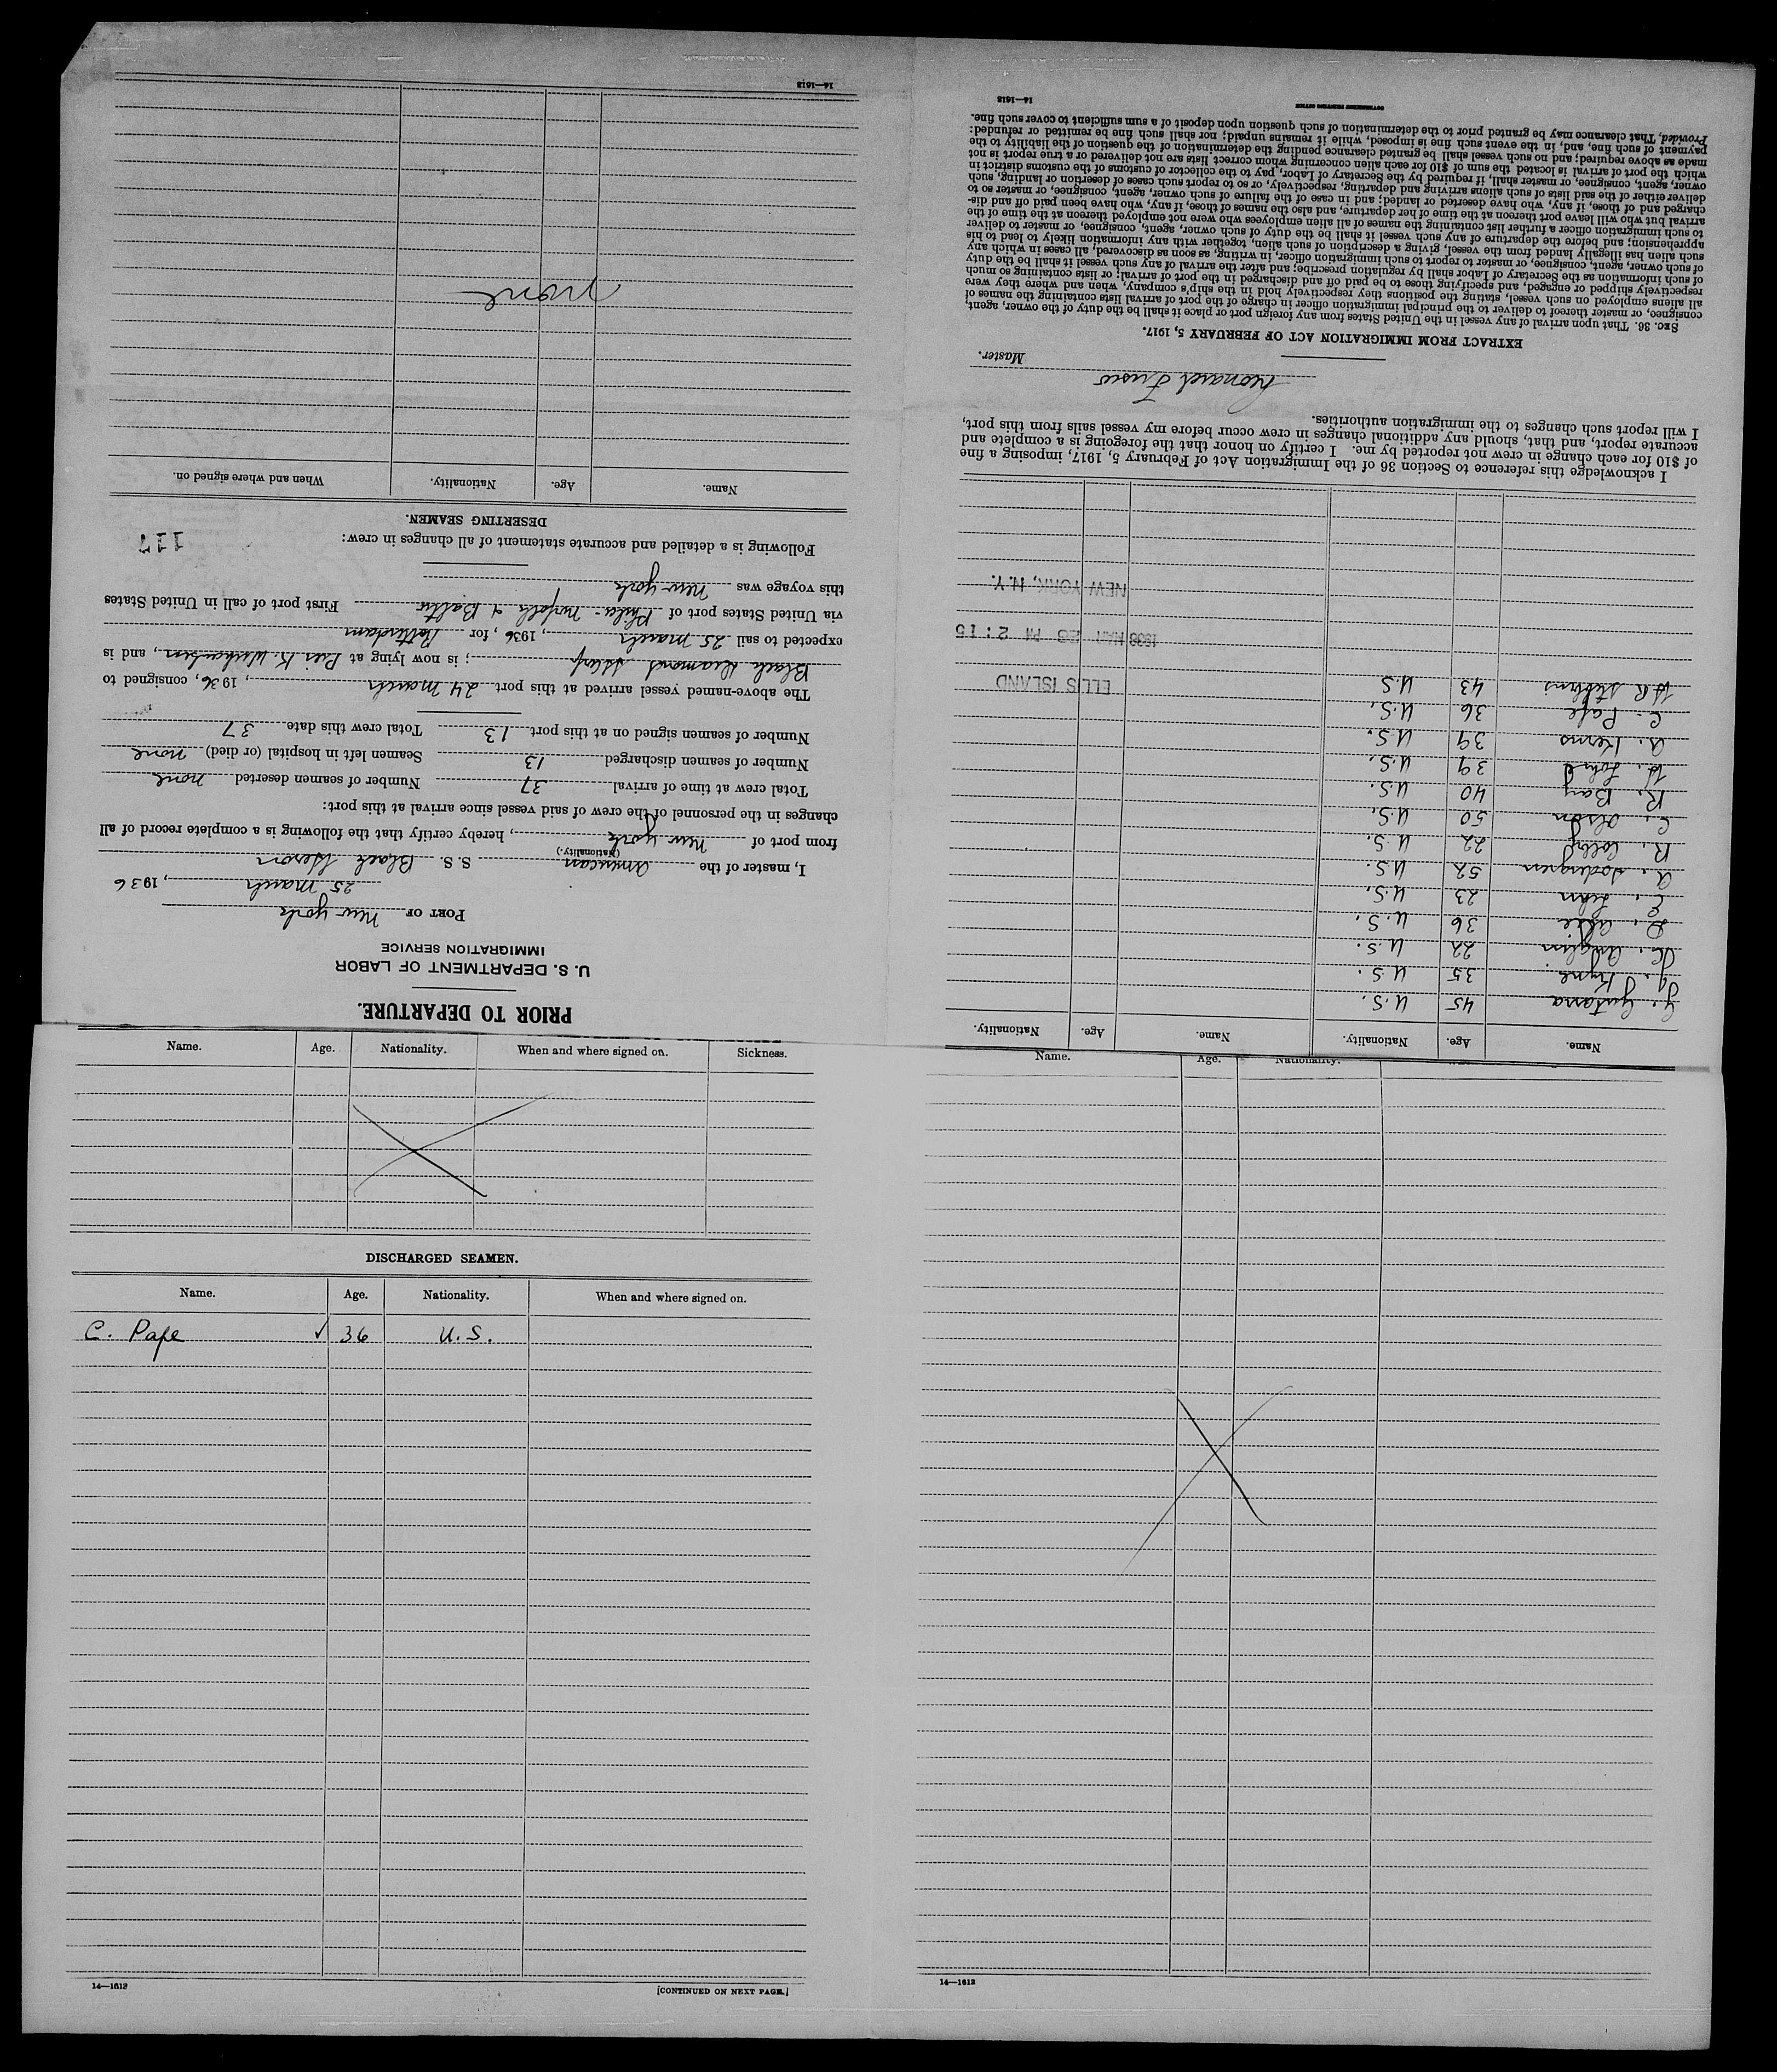 PRIOR TO DEPARTURE.
U. S. DEPARTMENT OF LABOR
IMMIGRATION SERVICE
PORT OF New York
25 March, 1936
I, master of the American S. S. Black Heron
(Nationality.)
from port of New York, hereby certify that the following is a complete record of all
changes in the personnel of the crew of said vessel since arrival at this port:
Total crew at time of arrival 37 Number of seamen deserted none
Number of seamen discharged 13 Seamen left in hospital (or died) none
Number of seamen signed on at this port 13 Total crew this date 37
The above-named vessel arrived at this port 24 March, 1936, consigned to
Black Diamond; is now lying at Pier K. Weehawken, and is
expected to sail 25 March, 1936, for Rotterdam
via United States port of Phila - Norfolk & Balto First port of call in United States
this voyage was New York
Following is a detailed and accurate statement of all changes in crew:
117
DESERTING SEAMEN.
Name. Age. Nationality. When and where signed on.
None
14—1613
Name. Age. Nationality. Name. Age. Nationality.
G. Gutarra 45 U.S.
J. Kyne 35 U.S.
22 U.S.
D. 36 U.S.
E. 23 U.S.
A. Sodergren 52 U.S.
R. Colby 22 U.S.
C. Olson 50 U.S.
R. Bay 40 U.S.
H. 39 U.S.
A. Kerns 39 U.S.
C. Pape 36 U.S.
H R Stebbins 43 U.S
ELLIS ISLAND
1936 MAR 26 PM 2:15
NEW YORK, N.Y.
I acknowledge this reference to Section 36 of the Immigration Act of February 5, 1917, imposing a fine
of $10 for each change in crew not reported by me. I certify on honor that the foregoing is a complete and
accurate report, and that, should any additional changes in crew occur before my vessel sails from this port,
I will report such changes to the immigration authorities.
Leonard
Master.
EXTRACT FROM IMMIGRATION ACT OF FEBRUARY 5, 1917.
SEC. 36. That upon arrival of any vessel in the United States from any foreign port or place it shall be the duty of the owner, agent,
consignee, or master thereof to deliver to the principal immigration officer in charge of the port of arrival lists containing the names of
all aliens employed on such vessel, stating the positions they respectively hold in the ship's company, when and where they were
respectively shipped or engaged, and specifying those to be paid off and discharged in the port of arrival; or lists containing so much
of such information as the Secretary of Labor shall by regulation prescribe; and after the arrival of any such vessel it shall be the duty
of such owner, agent, consignee, or master to report to such immigration officer, in writing, as soon as discovered, all cases in which any
such alien has illegally landed from the vessel, giving a description of such alien, together with any information likely to lead to his
apprehension; and before the departure of any such vessel it shall be the duty of such owner, agent, consignee, or master to deliver
to such immigration officer a further list containing the names of all alien employees who were not employed thereon at the time of the
arrival but who will leave port thereon at the time of her departure, and also the names of those, if any, who have been paid off and dis-
charged and of those, if any, who have deserted or landed; and in case of the failure of such owner, agent, consignee, or master so to
deliver either of the said lists of such aliens arriving and departing, respectively, or so to report such cases of desertion or landing, such
owner, agent, consignee, or master shall, if required by the Secretary of Labor, pay to the collector of customs of the customs district in
which the port of arrival is located the sum of $10 for each alien concerning whom correct lists are not delivered or a true report is not
made as above required; and no such vessel shall be granted clearance pending the determination of the question of the liability to the
payment of such fine, and, in the event such fine is imposed, while it remains unpaid; nor shall such fine be remitted or refunded:
Provided, That clearance may be granted prior to the determination of such question upon deposit of a sum sufficient to cover such fine.
14—1613
GOVERNMENT PRINTING OFFICE
Name. Age. Nationality. When and where signed on. Sickness.
DISCHARGED SEAMEN.
Name. Age. Nationality. When and where signed on.
C. Pape ✓ 36 U.S.
14—1613 [CONTINUED ON NEXT PAGE.]
Name. Age. Nationality.
14—1613